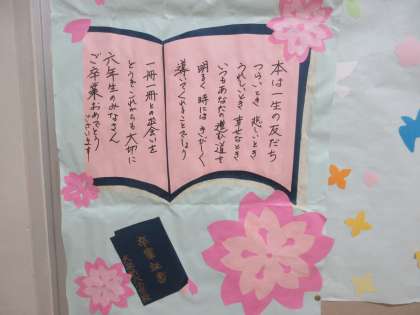 本は一生の友だち
つらいとき 悲しいとき
うれしいとき 幸せなとき
いつもあなたの進む道を
明るく 時には きびしく
導いてくれることでしょう
一冊一冊との出会いを
どうぞこれからも大切に
六年生のみなさん
ご卒業おめでとう
ございます
卒業証書